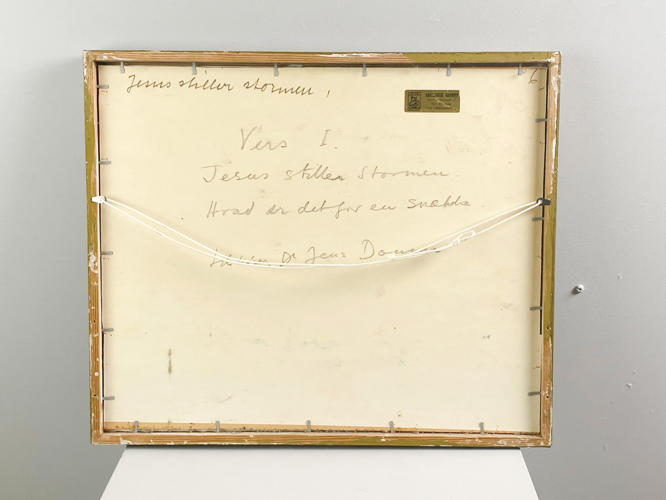 Jesus stiller stormen, 6
Vers I.
Jesus stiller Stormen.
Hvad er det for en snekke
Dr Jens